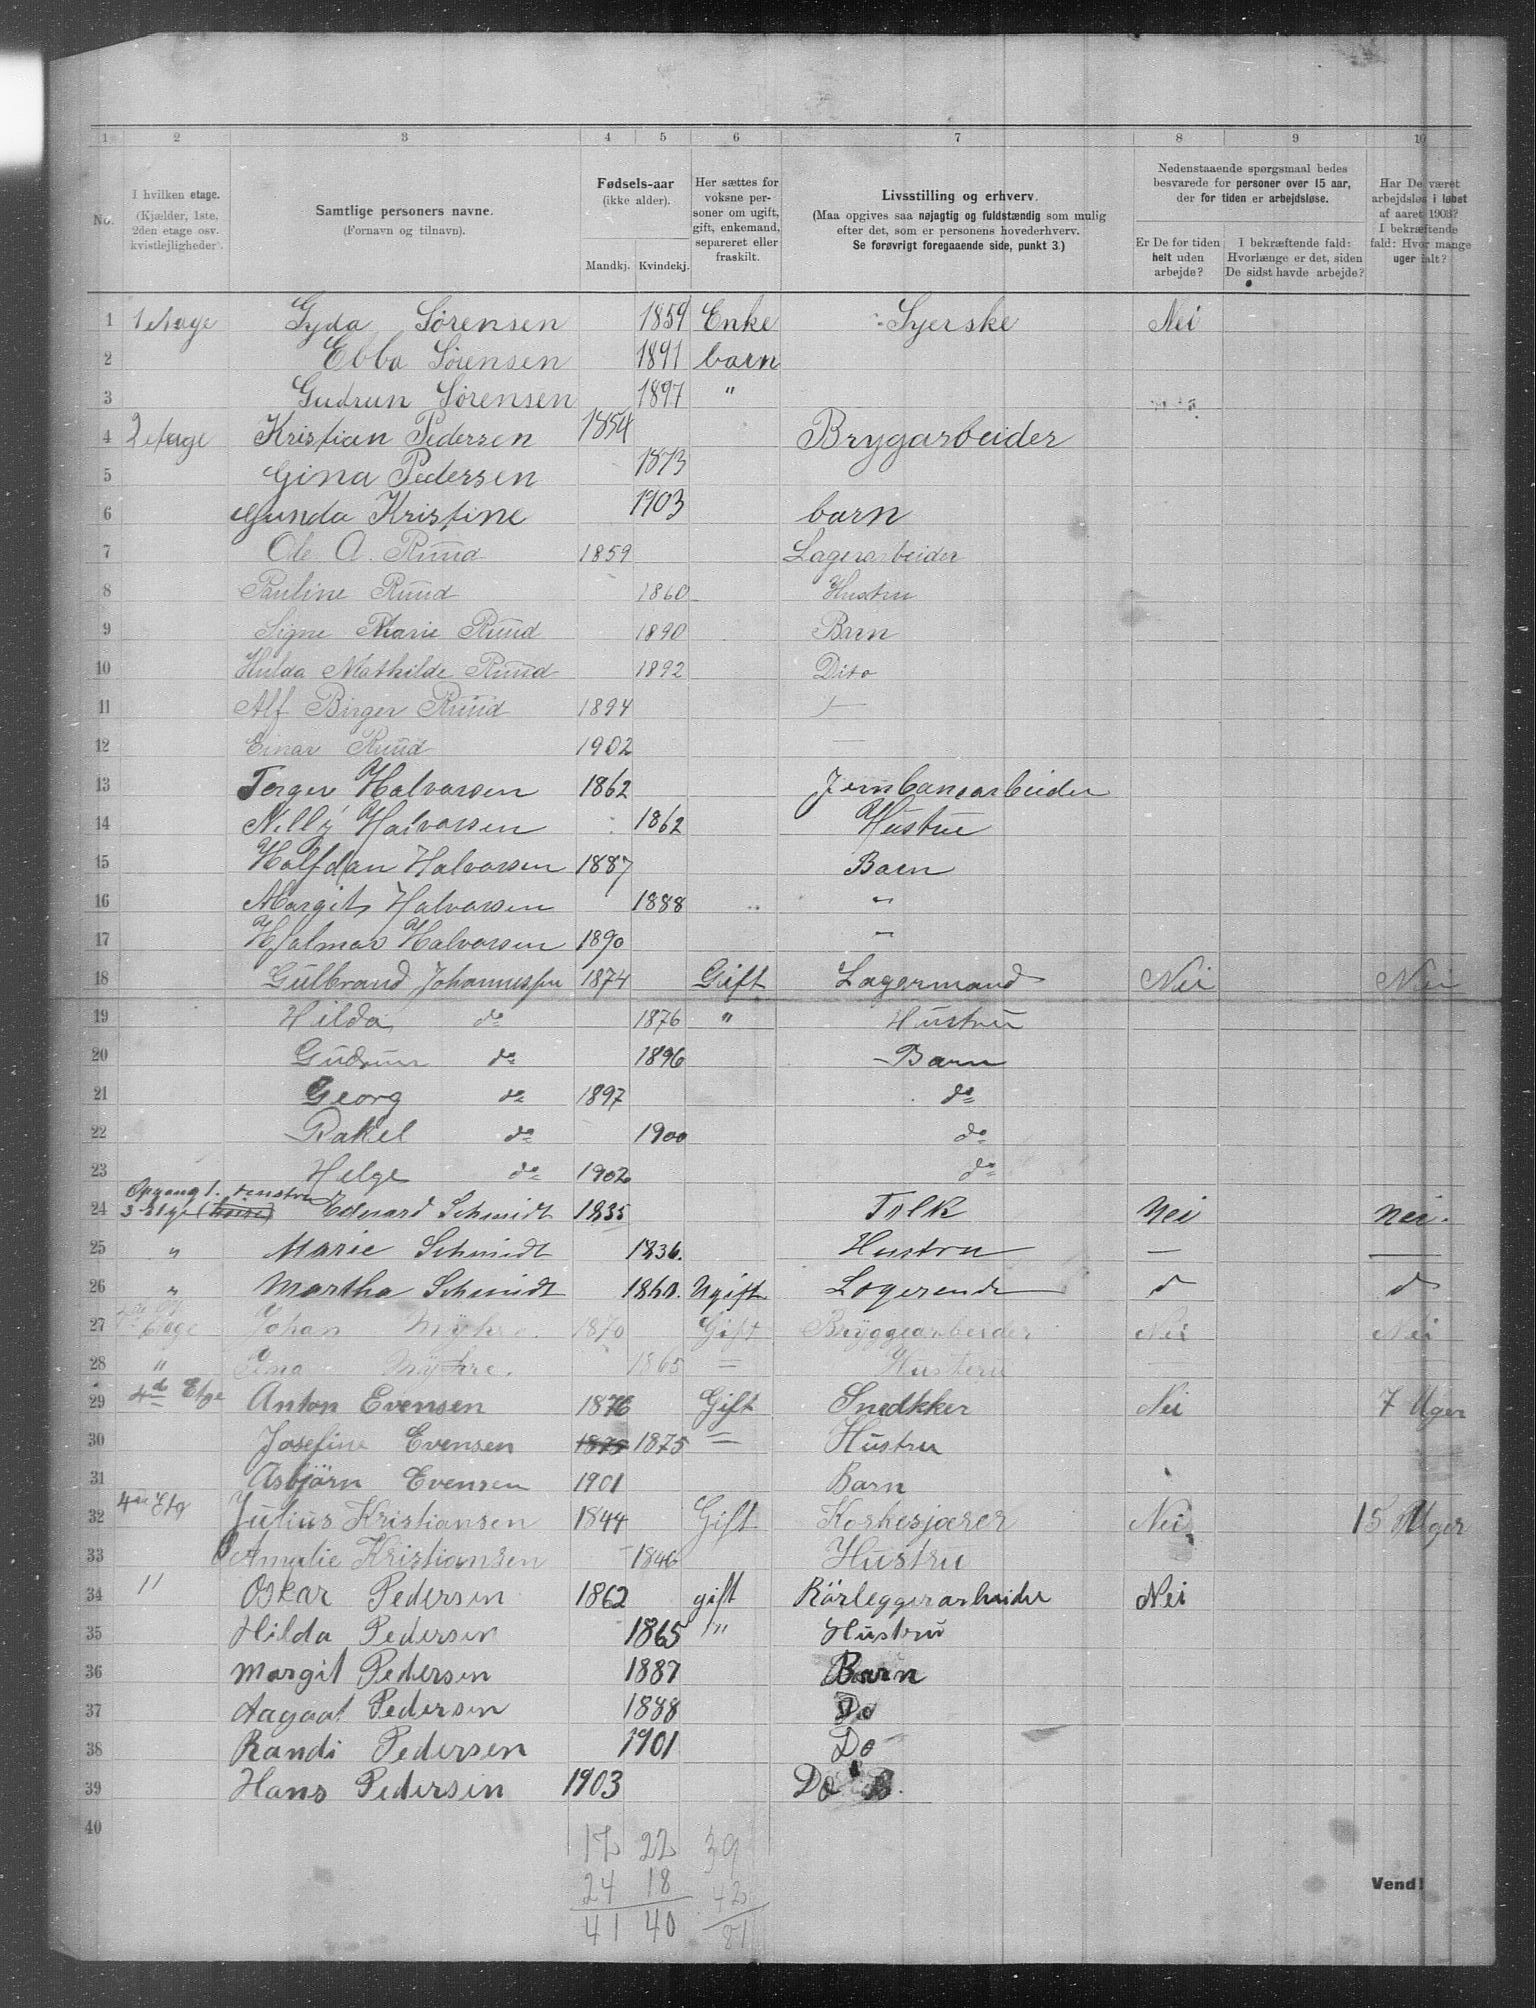 1 2 3 4 5 6 7 8 9 10
No.
I hvilken etage. (Kjælder, 1ste, 2den etage osv. kvistleiligheder).
Samtlige personers navne. (Fornavn og tilnavn).
Fødsels-aar (ikke alder). Mandkj. Kvindekj.
Her sættes for voksne personer om ugift, gift, enkemand, separeret eller fraskilt.
Livsstilling og erhverv. (Maa opgives saa nøjagtig og fuldstændig som mulig efter det, som er personens hovederhverv. Se forøvrigt foregaaende side, punkt 3.)
Nedenstaaende spørgsmaal bedes besvarede for personer over 15 aar, der for tiden er arbejdsløse.
Er De for tiden helt uden arbejde?
I bekræftende fald: Hvorlænge er det, siden De sidst havde arbejde?
Har De været arbejdsløs i løbet af aaret 1903? I bekræftende fald: Hvor mange uger ialt?
1 1 etage Gyda Sørensen 1859 Enke Syerske Nei
2 Ebba Sørensen 1891 barn
3 Gudrun Sørensen 1897 "
4 2 etage Kristian Pedersen 1854 Brygarbeider
5 Gina Pedersen 1873
6 Gunda Kristine 1903 barn
7 Ole A. Ruud 1859 Lagerarbeider
8 Pauline Ruud 1860 Hustru
9 Signe Marie Ruud 1890 Barn
10 Hulda Mathilde Ruud 1892 Dito
11 Alf Birger Ruud 1894 —
12 Einar Ruud 1902 —
13 Torger Halvorsen 1862 Jernbanearbeider
14 Nelly Halvorsen 1862 Hustrue
15 Halfdan Halvorsen 1887 Barn
16 Margit Halvorsen 1888 "
17 Hjalmar Halvorsen 1890 "
18 Gulbrand Johannessen 1874 Gift Lagermand Nei Nei
19 Hilda do 1876 " Hustru
20 Gudrun do 1896 Barn
21 Georg do 1897 do
22 Rakel do 1900 do
23 Helge do 1902 do
Opgang 1. venstre
24 3 Etge (høire) Edvard Schmidt 1835 Tolk Nei Nei.
25 " Marie Schmidt 1836. Hustru — —
26 " Martha Schmidt 1860. Ugift Logerende d d
27 Etage Johan Myhre. 1870 Gift Bryggearbeider Nei Nei
28 " Myhre. 1865 = Husteru
29 4de Etge Anton Evensen 1876 Gift Snedkker Nei 7 Uger
30 Josefine Evensen 1875 1875 = Hustru
31 Asbjörn Evensen 1901 Barn
32 4de Etg Julius Kristiansen 1844 Gift Korkesjærer Nei 15 Uger
33 Amalie Kristiansen 1846 Hustru
34 11 Oskar Pedersen 1862 gift Rörleggerarbeider Nei
35 Hilda Pedersen 1865 " Hustru
36 Margit Pedersen 1887 Barn
37 Aagaat Pedersen 1888 Do
38 Randi Pedersen 1901 Do
39 Hans Pedersen 1903 Do B.
40
17 22 39
24 18 42
41 40 81
Vend!